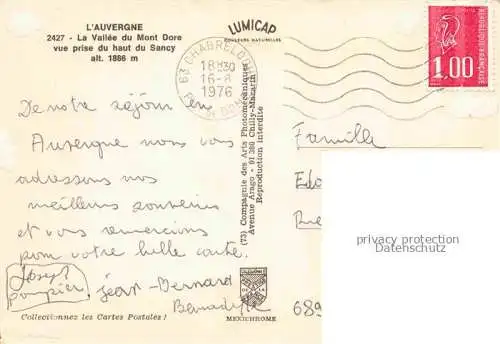 L'AUVERGNE
2427 - La Vallée du Mont Dore
vue prise du haut du Sancy
alt. 1886 m
LUMICAP
COULEURS NATURELLES
63 CHABRELOCHE
18H30
16-8
1976
1.00
De notre séjour en
Auvergne nous vous
adressons nos
meilleurs souvenirs
et vous remercions
pour votre belle carte.
Joseph
pompier
Jean-Bernard
Bernadette
Collectionnez les Cartes Postales !
(73) Compagnie des Arts Photomécaniques
Avenue Arago - 91 380 Chilly-Mazarin
Reproduction interdite
MEXICHROME
Famille
privacy protection
Datenschutz
689